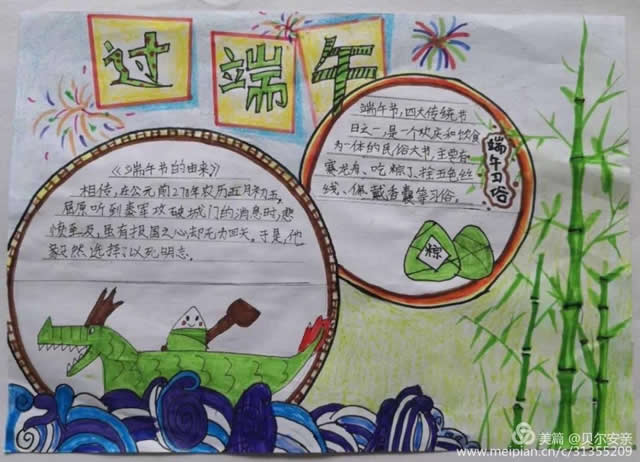 过端午
《端午节的由来》
相传,在公元前278年农历五月初五,
屈原听到秦军攻破城门的消息时,悲
愤至极,虽有报国之心,却无力回天。于是,他
毅然选择了以死明志。
端午节,四大传统节
日之一,是一个欢庆和饮食
为一体的民俗大节,主要有
赛龙舟、吃粽子、拴五色丝
线、佩戴香囊等习俗。
端午习俗
粽
美篇 @贝尔安亲
www.meipian.cn/c/31355209